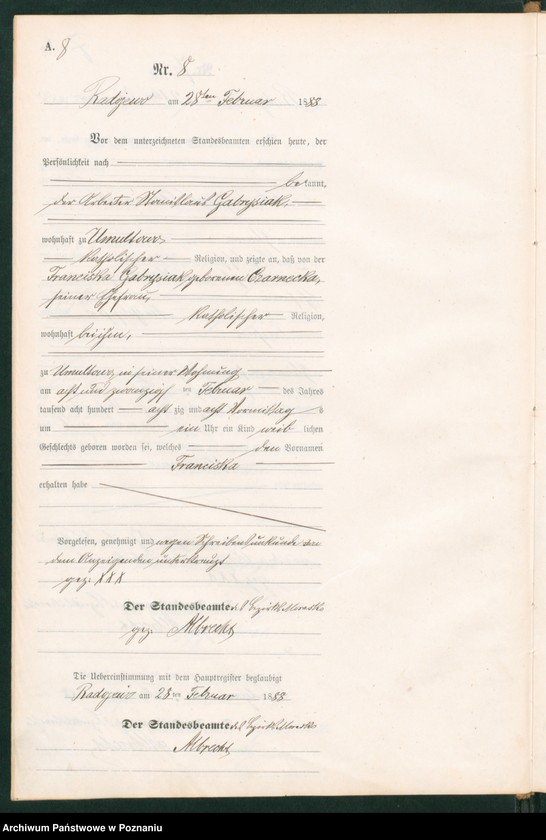 A. 8
Nr. 8
Radojewo am 28ten Februar 1888
Vor dem unterzeichneten Standesbeamten erschien heute, der
Persönlichkeit nach
bekannt,
der Arbeiter Stanislaus Gabrysiak,
wohnhaft zu Umultowo,
katholischer Religion, und zeigte an, daß von der
Franciska Gabrysiak geborenen Czarnecka,
seiner Ehefrau,
katholischer Religion,
wohnhaft bei ihm,
zu Umultowo, in seiner Wohnung
am acht und zwanzigsten Februar des Jahres
tausend acht hundert achtzig und acht Vormittags
um ein Uhr ein Kind weiblichen
Geschlechts geboren worden sei, welches den Vornamen
Franciska
erhalten habe
Vorgelesen, genehmigt und wegen Schreibensunkunde von
dem Anzeigenden unterkreuzt
gez. XXX
Der Standesbeamte.
gez. Albrecht
Die Uebereinstimmung mit dem Hauptregister beglaubigt
Radojewo am 28ten Februar 1888
Der Standesbeamte.
Albrecht
Archiwum Państwowe w Poznaniu